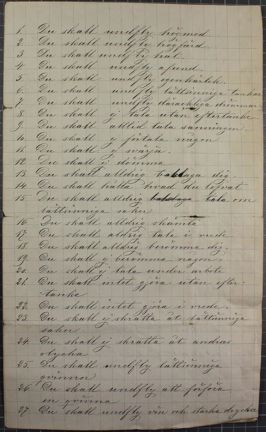 1. Du skall undfly högmod
2. Du skall undfly högfärd
3. Du skall undfly hat
4. Du skall undfly afund.
5. Du skall undfly egenkärlek
6. Du skall undfly lättsinniga tankar
7. Du skall undfly dåraktiga drömmar
8. Du skall ej tala utan eftertanke
9. Du skall alltid tala sanningen.
10. Du skall ej förtala någon
11. Du skall ej svärja
12. Du skall ej dömma
13. Du skall aldrig beklaga dig.
14. Du skall hålla hvad du lofvat
15. Du skall aldrig tala om
lättsinniga saker
16. Du skall aldrig skämta
17. Du skall aldrig tala i vrede
18. Du skall aldrig berömma dig.
19. Du skall ej berömma någon
20. Du skall ej tala under arbete
21. Du skall intet göra utan efter-
tanke
22. Du skall intet göra i vrede.
23. Du skall ej skratta åt lättsinniga
saker
24. Du skall ej skratta åt andras
olycka
25. Du skall undfly lättsinniga
qvinnor
26. Du skall undfly att förföra
en qvinna
27. Du skall undfly vin och starka drycker